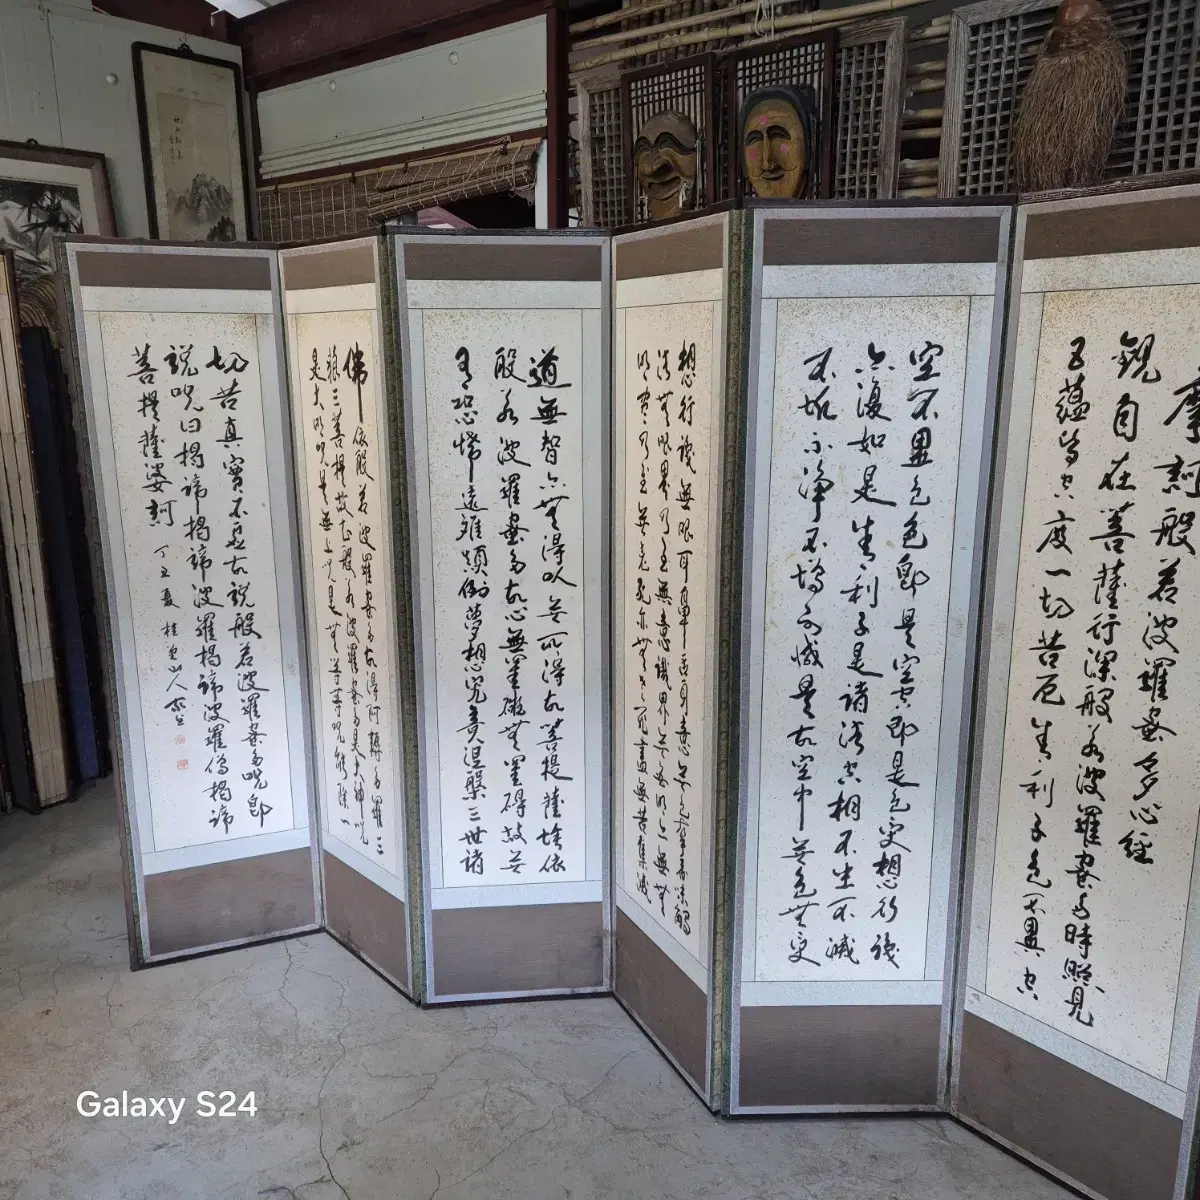 摩訶般若波羅蜜多心經
觀自在菩薩行深般若波羅蜜多時照見
五蘊皆空度一切苦厄舍利子色不異空
空不異色色即是空空即是色受想行識
亦復如是舍利子是諸法空相不生不滅
不垢不淨不增不減是故空中無色無受
想行識無眼耳鼻舌身意無色聲香味觸
法無眼界乃至無意識界無無明亦無無
明盡乃至無老死亦無老死盡無苦集滅
道無智亦無得以無所得故菩提薩埵依
般若波羅蜜多故心無罣礙無罣碍故無
有恐怖遠離顛倒夢想究竟涅槃三世諸
佛依般若波羅蜜多故得阿耨多羅三
藐三菩提故知般若波羅蜜多是大神呪
是大明呪是無上呪是無等等呪能除一
切苦真實不虛故說般若波羅蜜多呪即
說呪曰揭諦揭諦波羅揭諦波羅僧揭諦
菩提薩婆訶 丁丑夏 山人
Galaxy S24